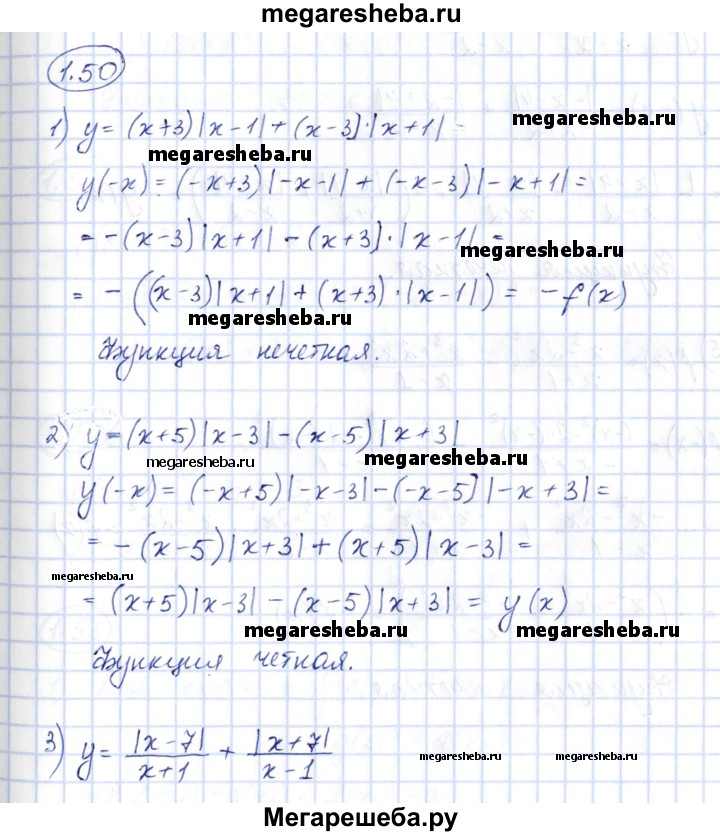 megaresheba.ru
1.50
1) y = (x+3)|x-1| + (x-3)·|x+1| =
megaresheba.ru
megaresheba.ru
y(-x) = (-x+3)|-x-1| + (-x-3)|-x+1| =
= -(x-3)|x+1| - (x+3)·|x-1| =
megaresheba.ru
= -((x-3)|x+1| + (x+3)·|x-1|) = -f(x)
megaresheba.ru
Функция нечетная.
2) y = (x+5)|x-3| - (x-5)|x+3|
megaresheba.ru
megaresheba.ru
y(-x) = (-x+5)|-x-3| - (-x-5)|-x+3| =
= -(x-5)|x+3| + (x+5)|x-3| =
megaresheba.ru
= (x+5)|x-3| - (x-5)|x+3| = y(x)
megaresheba.ru
megaresheba.ru
Функция четная.
3) y = |x-7|/(x+1) + |x+7|/(x-1)
megaresheba.ru
megaresheba.ru
Мегарешеба.ру